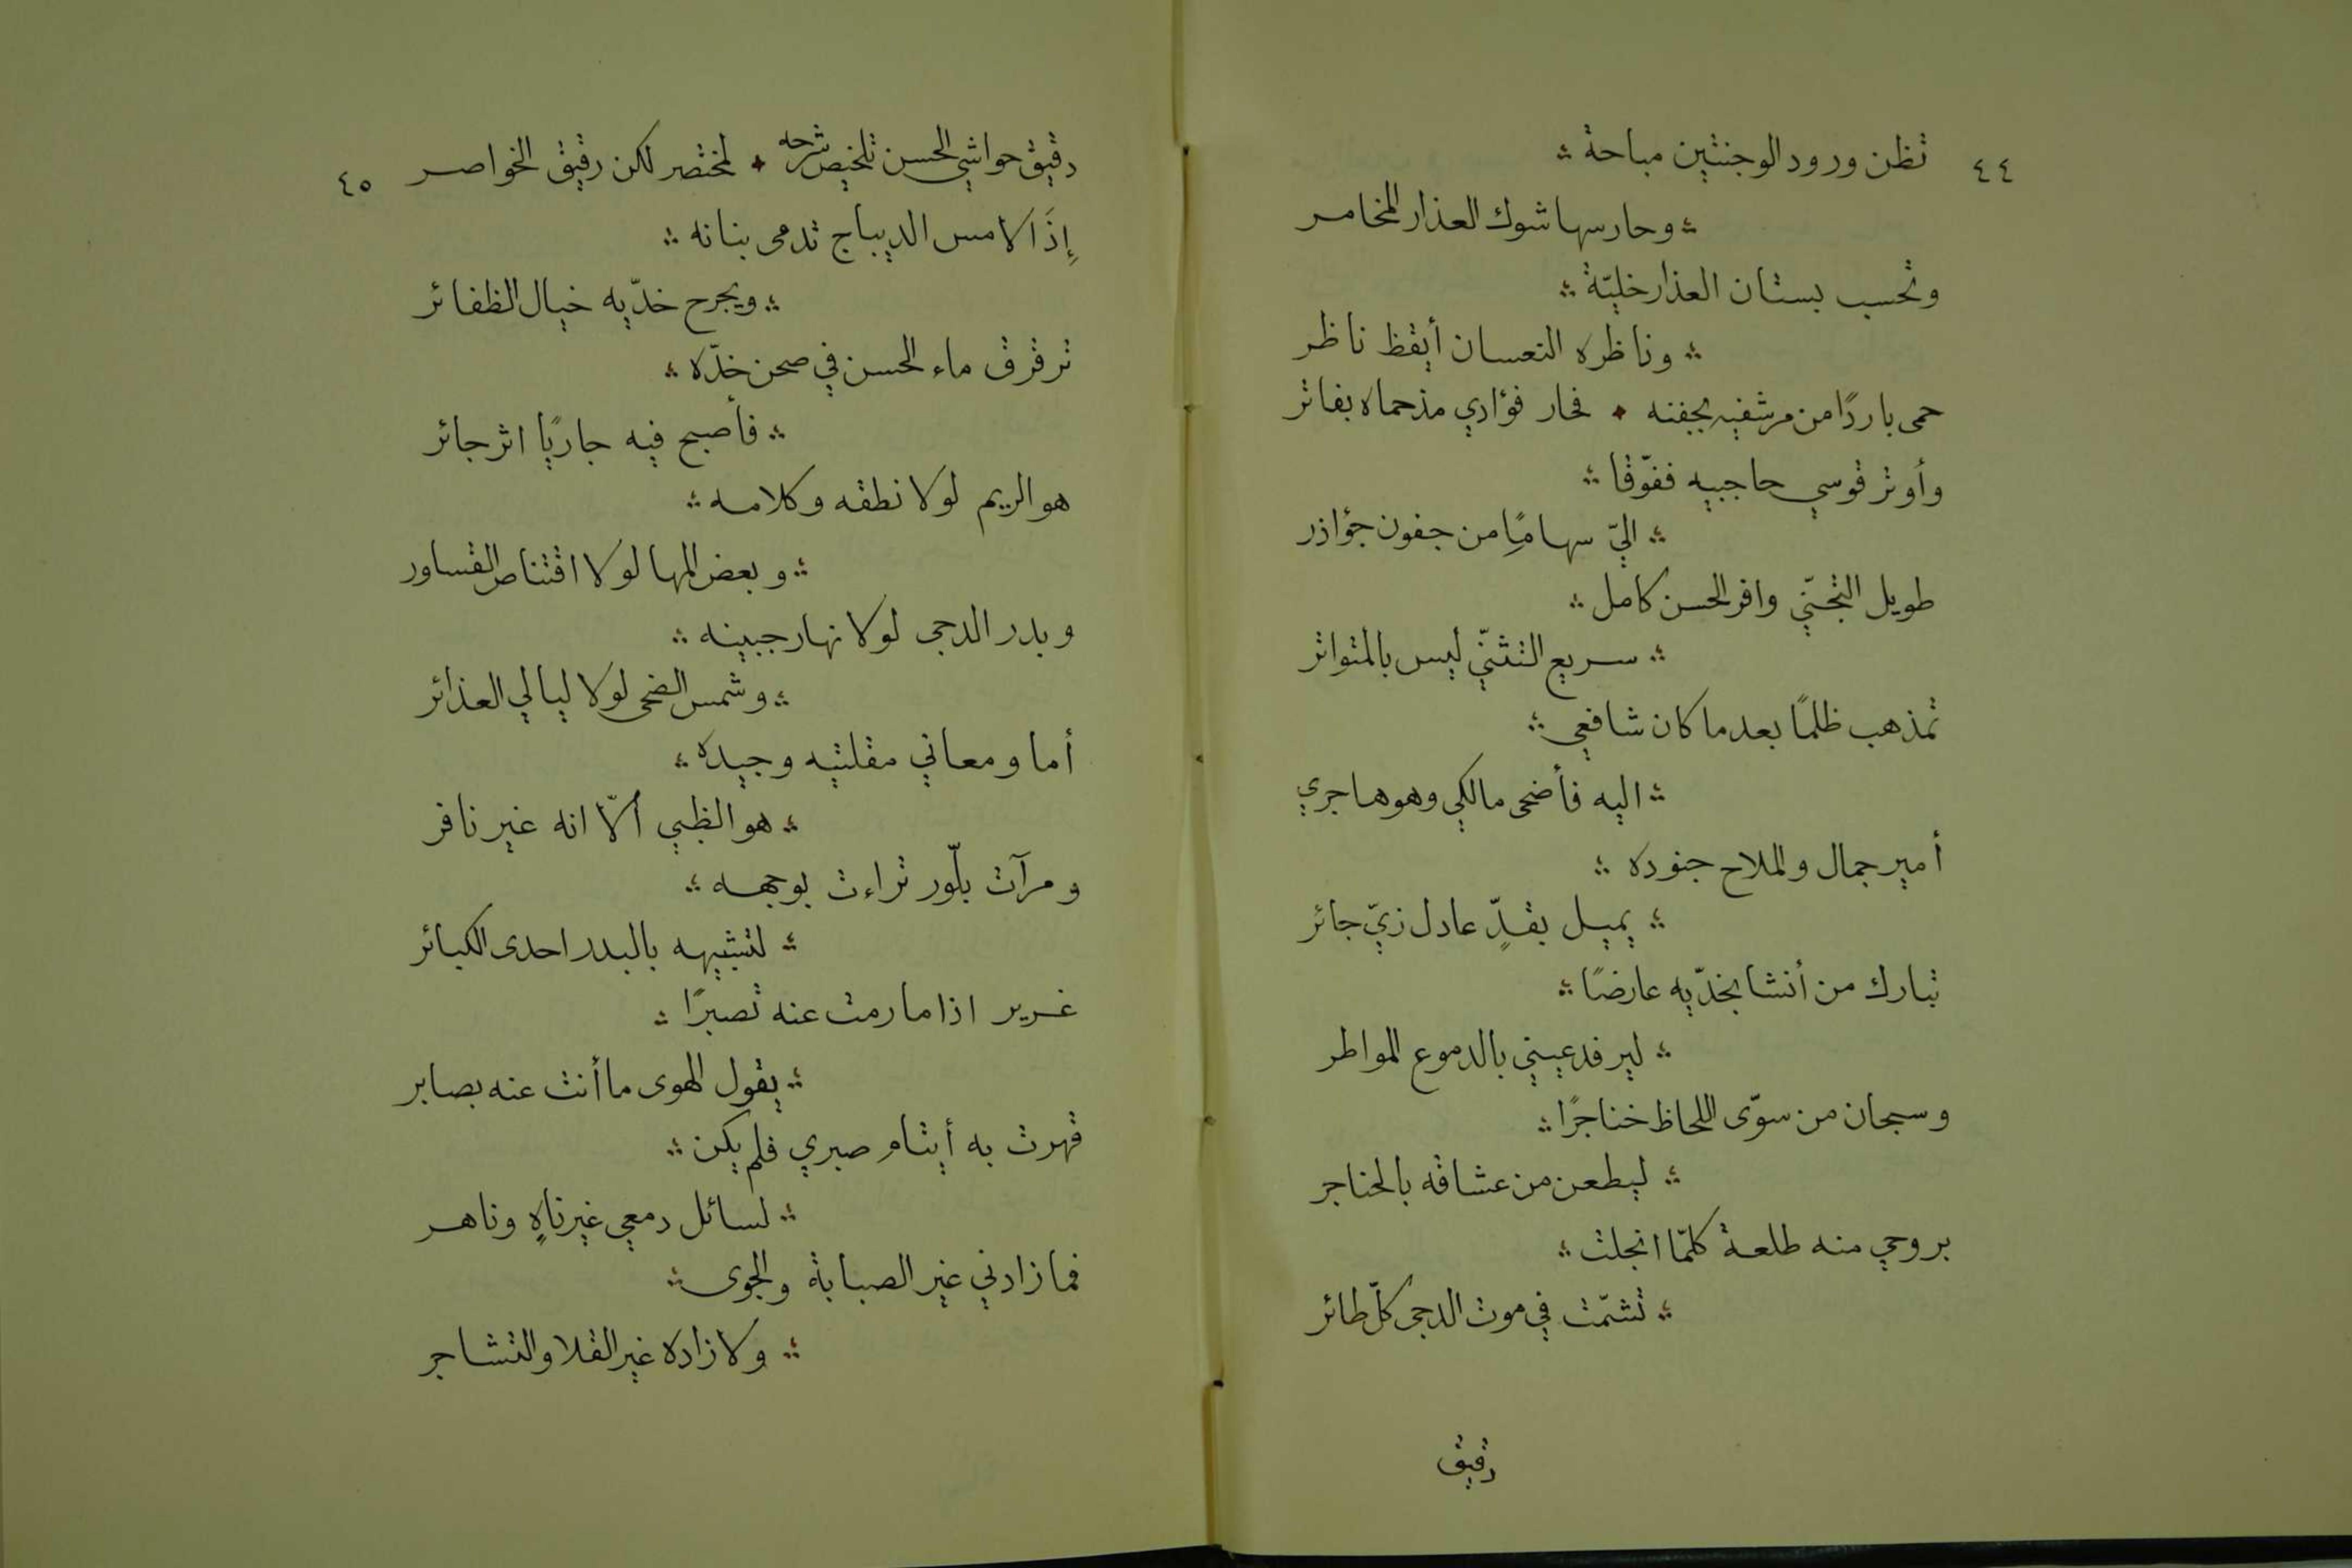 ٤٤
تظن ورود الوجنتين مباحة ؞
؞ وحارسها شوك العذار المخامر
وتحسب بستان العذار خليّة ؞
؞ وناظره النعسان أيقظ ناظر
حمى باردًا من مرشفيه بجفنه ٭ فحار فؤادي مذ حماه بفاتر
وأوتر قوسي حاجبيه ففوّقا ؞
؞ اليّ سهامًا من جفون جؤاذر
طويل التجنّي وافر الحسن كامل ؞
؞ سريع التثنّي ليس بالمتواتر
تمذهب ظلمًا بعدما كان شافعي ؞
؞ اليه فأضحى مالكي وهو هاجري
أمير جمال والملاح جنوده ؞
؞ يميل بقدٍّ عادل زيّ جائر
تبارك من أنشا بخدّيه عارضًا ؞
؞ ليرفد عيني بالدموع المواطر
وسبحان من سوّى اللحاظ خناجرًا ؞
؞ ليطعن من عشاقه بالحناجر
بروحي منه طلعة كلّما انجلت ؞
؞ تشمّت في موت الدجى كلّ طائر
دقيق
٤٥
دقيق حواشي الحسن تلخيص شرحه ٭ لمختصر لكن رقيق الخواصر
إذَا لامس الديباج تدمى بنانه ؞
؞ ويجرح خدّيه خيال الظفائر
ترقرق ماء الحسن في صحن خدّه ؞
؞ فأصبح فيه جاريًا اثر جائر
هو الريم لولا نطقه وكلامه ؞
؞ وبعض المها لولا اقتناص القساور
وبدر الدجى لولا نهار جبينه ؞
؞ وشمس الضحى لولا ليالي العذائر
أما ومعاني مقلتيه وجيده ؞
؞ هو الظبي ألّا انه غير نافر
ومرآت بلّور تراءت بوجهه ؞
؞ لتشبيهه بالبدر احدى الكبائر
غرير اذا ما رمت عنه تصبرًا ؞
؞ يقول الهوى ما أنت عنه بصابر
قهرت به أيتام صبري فلم يكن ؞
؞ لسائل دمعي غير ناهٍ وناهر
فما زادني غير الصبابة والجوى ؞
؞ ولا زاده غير القلا والتشاجر